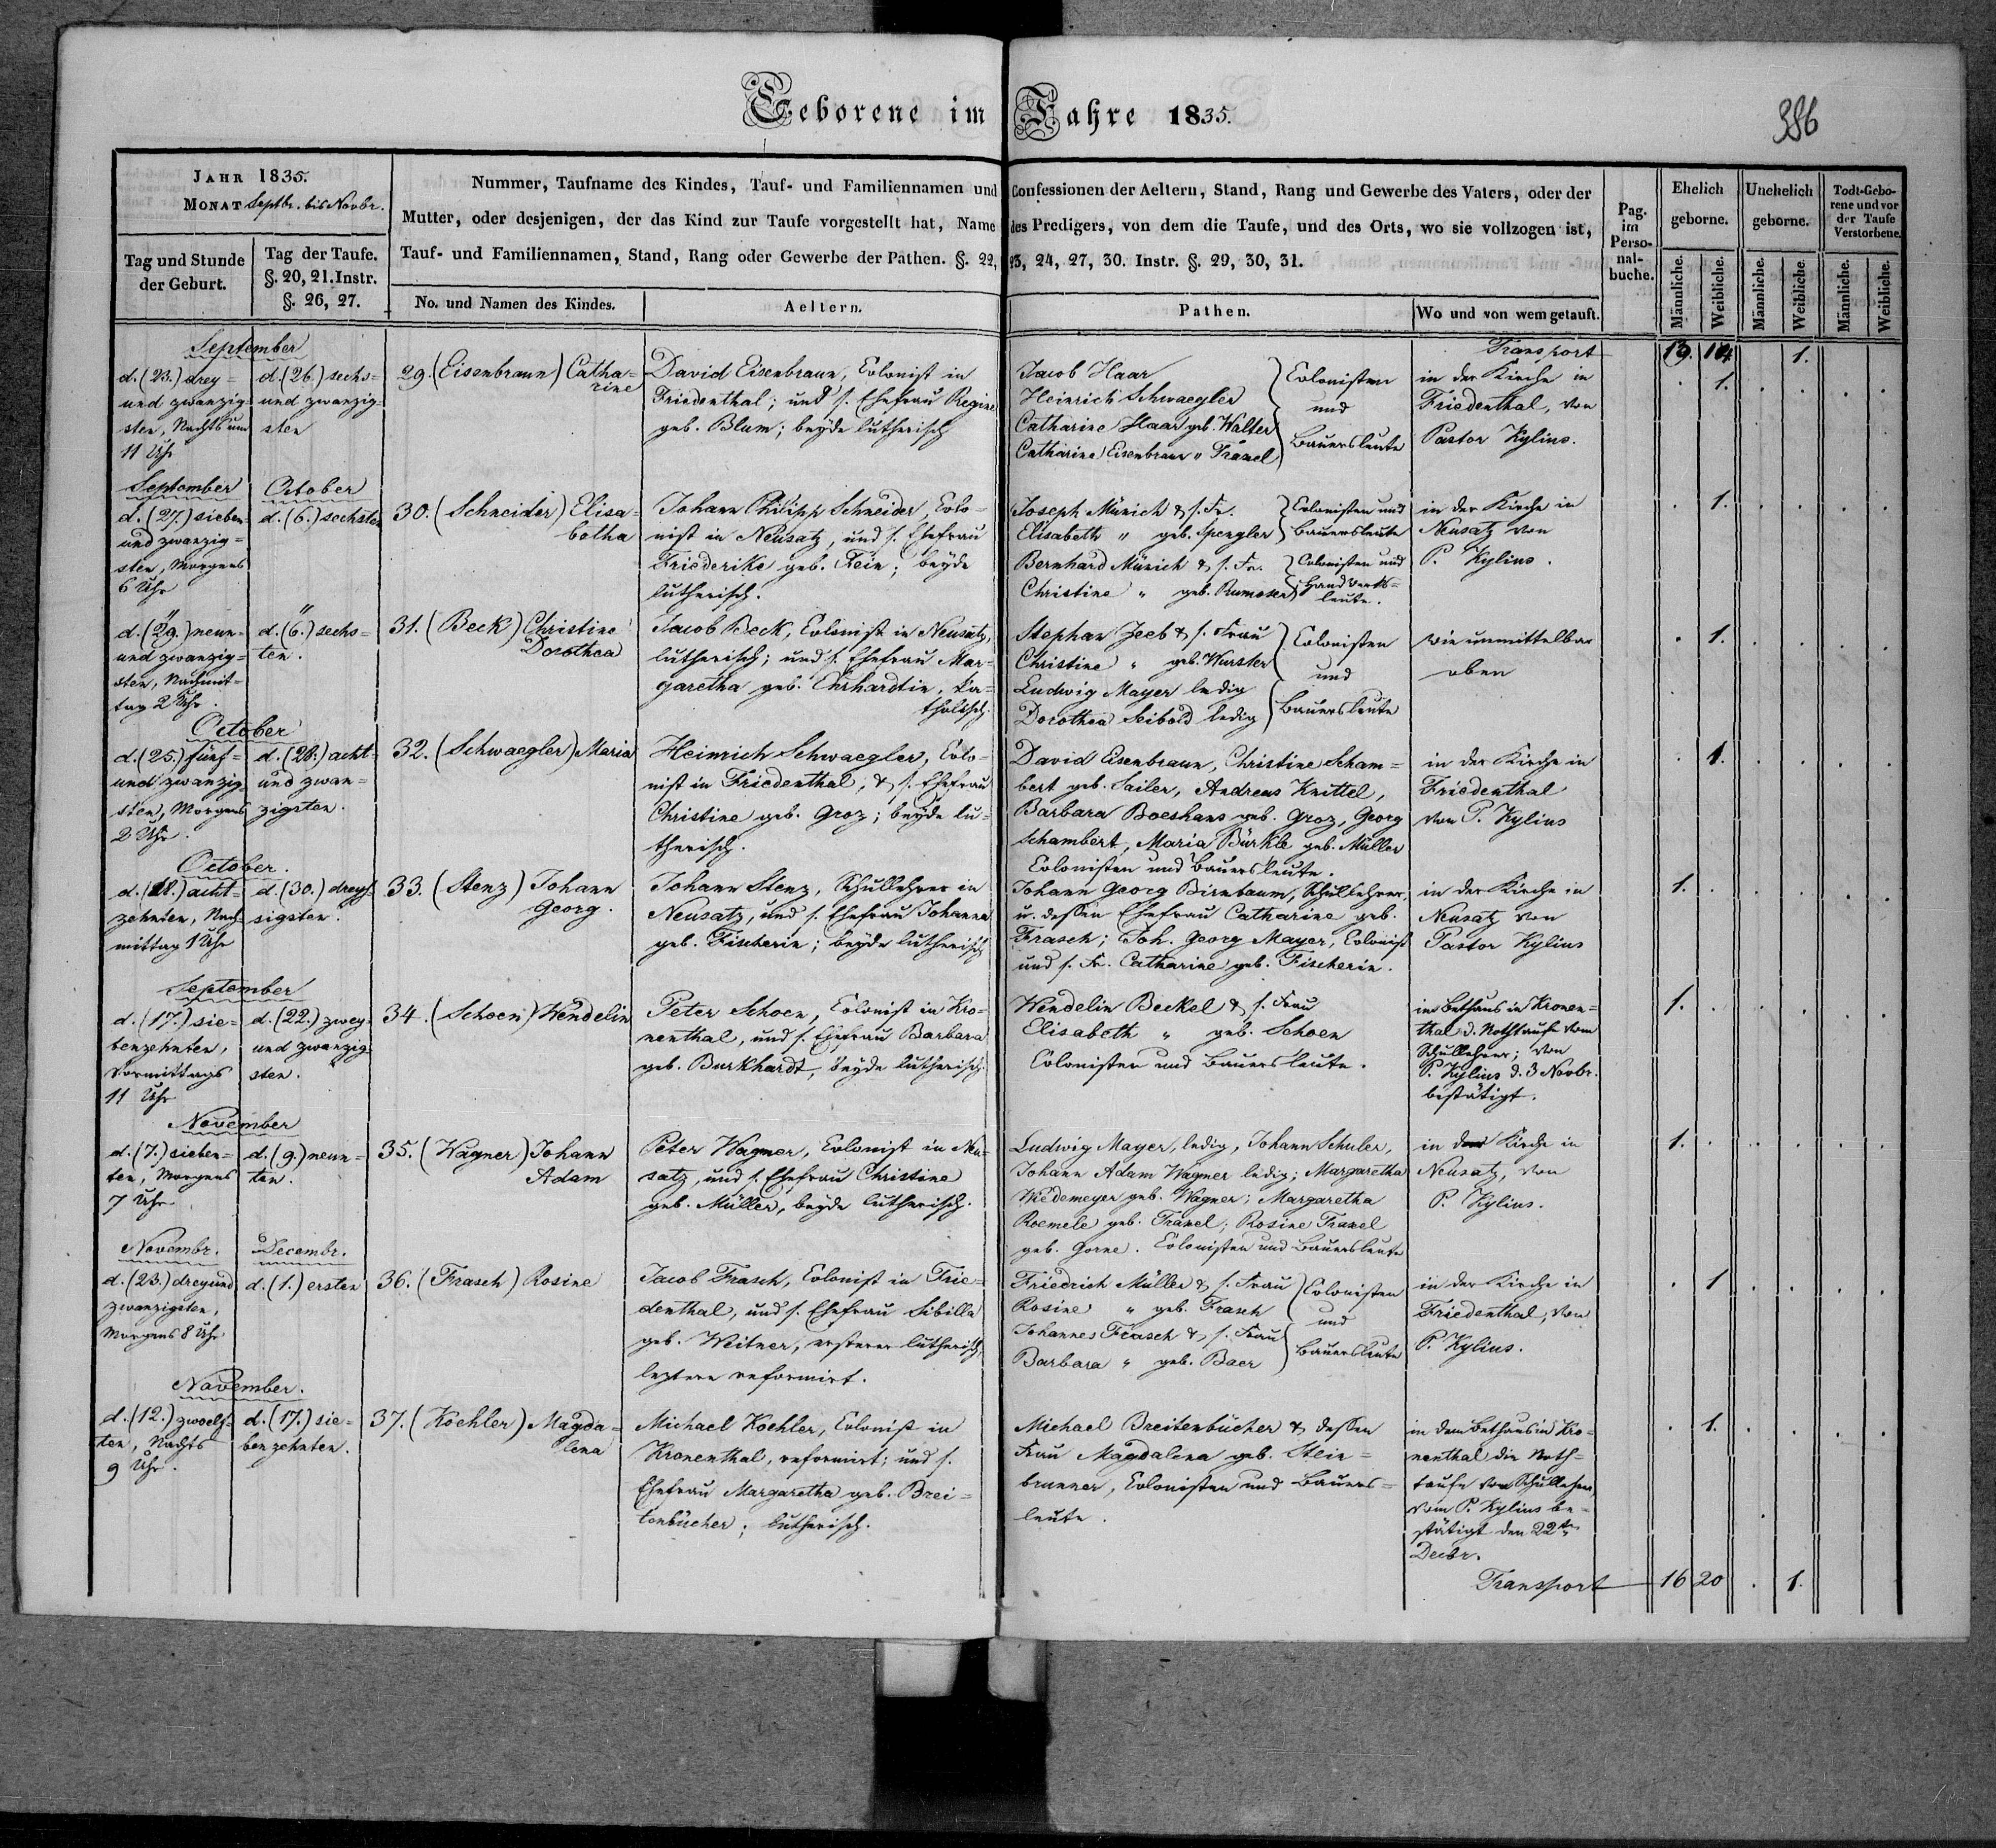 Geborene im Jahre 1835.
386
JAHR 1835.
MONAT Septbr. bis Novbr.
Tag und Stunde der Geburt.
Tag der Taufe. §. 20, 21. Instr. §. 26, 27.
Nummer, Taufname des Kindes, Tauf- und Familiennamen und Confessionen der Aeltern, Stand, Rang und Gewerbe des Vaters, oder der
Mutter, oder desjenigen, der das Kind zur Taufe vorgestellt hat, Name des Predigers, von dem die Taufe, und des Orts, wo sie vollzogen ist,
Tauf- und Familiennamen, Stand, Rang oder Gewerbe der Pathen. §. 22, 23, 24, 27, 30. Instr. §. 29, 30, 31.
No. und Namen des Kindes.
Aeltern.
Pathen.
Wo und von wem getauft.
Pag. im Perso-nal-buche.
Ehelich geborne.
Unehelich geborne.
Todt-Gebo-rene und vor der Taufe Verstorbene.
Männliche. Weibliche. Männliche. Weibliche. Männliche. Weibliche.
Transport 13. 14. 1.
September
d. (23.) drey=
und zwanzig=
sten, Nachts um
11 Uhr
d. (26.) sechs=
und zwanzig=
sten
29. (Eisenbraun) Catha=
rine
David Eisenbraun, Colonist in
Friedenthal; und s. Ehefrau Regine
geb. Blum; beyde lutherisch
Jacob Haar
Heinrich Schwaegler
Catharine Haar geb. Walter
Catharine Eisenbraun "
Colonisten
und
Bauersleute
in der Kirche in
Friedenthal, von
Pastor Kylius.
1.
September
d. (27.) sieben=
und zwanzig=
sten, Morgens
6 Uhr
October
d. (6.) sechsten
30. (Schneider) Elisa=
betha
Johann Philipp Schneider, Colo=
nist in Neusatz, und s. Ehefrau
Friederike geb. Fein; beyde
lutherisch.
Joseph Münich & s. Fr.
Elisabeth " geb. Spengler
Bernhard Münich & s. Fr.
Christine " geb.
Colonisten und
Bauersleute
Colonisten und
Handwerks=
leute.
in der Kirche in
Neusatz von
P. Kylius.
1.
"
d. (29.) neun=
und zwanzig=
sten, Nachmit=
tag 2 Uhr.
"
d. (6.) sechs=
ten.
31. (Beck) Christine
Dorothea
Jacob Beck, Colonist in Neusatz,
lutherisch; und s. Ehefrau Mar=
garetha geb. Ehrhardtin, ka=
tholisch.
Stephan Jeeb & s. Frau
Christine " geb. Wurster
Ludwig Mayer ledig
Dorothea Seibold ledig
Colonisten
und
Bauersleute
wie unmittelbar
oben
1.
October
d. (25.) fünf=
und zwanzig
sten, Morgens
2 Uhr.
d. (28.) acht=
und zwan=
zigsten.
32. (Schwaegler) Maria
Heinrich Schwaegler, Colo=
nist in Friedenthal, & s. Ehefrau
Christine geb. Groz; beyde lu=
therisch.
David Eisenbraun, Christine Scham=
bert geb. Sailer, Andreas Knittel,
Barbara Boeshans geb. Groz, Georg
Schambert, Maria Bürkle geb. Müller
Colonisten und Bauersleute.
in der Kirche in
Friedenthal
von P. Kylius
1.
October.
d. (18.) acht=
zehnten, Nach=
mittag 1 Uhr
d. (30.) dreys=
sigsten.
33. (Stenz) Johann
Georg.
Johann Stenz, Schullehrer in
Neusatz, und s. Ehefrau Johanna
geb. Fischerin; beyde lutherisch
Johann Georg Birnbaum, Schullehrer,
u. dessen Ehefrau Catharine geb.
Frasch; Joh. Georg Mayer, Colonist
und s. Fr. Catharine geb. Fischerin.
in der Kirche in
Neusatz von
Pastor Kylius
1.
September
d. (17.) sie=
benzehnten,
Vormittags
11 Uhr
d. (22.) zwey
und zwanzig=
sten.
34. (Schoen) Wendelin
Peter Schoen, Colonist in Kro=
nenthal, und s. Ehefrau Barbara
geb. Burkhardt, beyde lutherisch.
Wendelin Beckel & s. Frau
Elisabeth " geb. Schoen
Colonisten und Bauersleute.
im Bethaus in Kronen=
thal d. Nothtaufe vom
Schullehrer; von
P. Kylius d. 3 Novbr.
bestätigt.
1.
November
d. (7.) sieben=
ten, Morgens
7 Uhr
d. (9.) neun=
ten.
35. (Wagner) Johann
Adam
Peter Wagner, Colonist in Neu=
satz, und s. Ehefrau Christine
geb. Müller, beyde lutherisch.
Ludwig Mayer, ledig, Johann Schuler,
Johann Adam Wagner ledig; Margaretha
Wiedemeyer geb. Wagner; Margaretha
Roemele geb. Rosine
geb. Colonisten und Bauersleute
in der Kirche in
Neusatz, von
P. Kylius.
1.
Novembr.
d. (23.) dreyund
zwanzigsten,
Morgens 8 Uhr
Decembr.
d. (1.) ersten
36. (Frasch) Rosine
Jacob Frasch, Colonist in Frie=
denthal, und s. Ehefrau Sibilla
geb. Weitner, ersterer lutherisch,
leztere reformirt.
Friedrich Müller & s. Frau
Rosine " geb. Frasch
Johannes Frasch & s. Frau
Barbara " geb. Baer
Colonisten
und
Bauersleute
in der Kirche in
Friedenthal, von
P. Kylius.
1
November.
d. (12.) zwoelf=
ten, Nachts
9 Uhr.
d. (17.) sie=
benzehnten.
37. (Koehler) Magda=
lena
Michael Koehler, Colonist in
Kronenthal, reformirt; und s.
Ehefrau Margaretha geb. Brei=
tenbücher; lutherisch.
Michael Breitenbücher & dessen
Frau Magdalena geb. Stein=
brunner, Colonisten und Bauers=
leute.
in dem Bethaus in Kro=
nenthal die Noth=
taufe vom Schullehrer,
vom P. Kylius be=
stätigt den 22ten
Decbr.
1.
Transport 16 20 . 1.